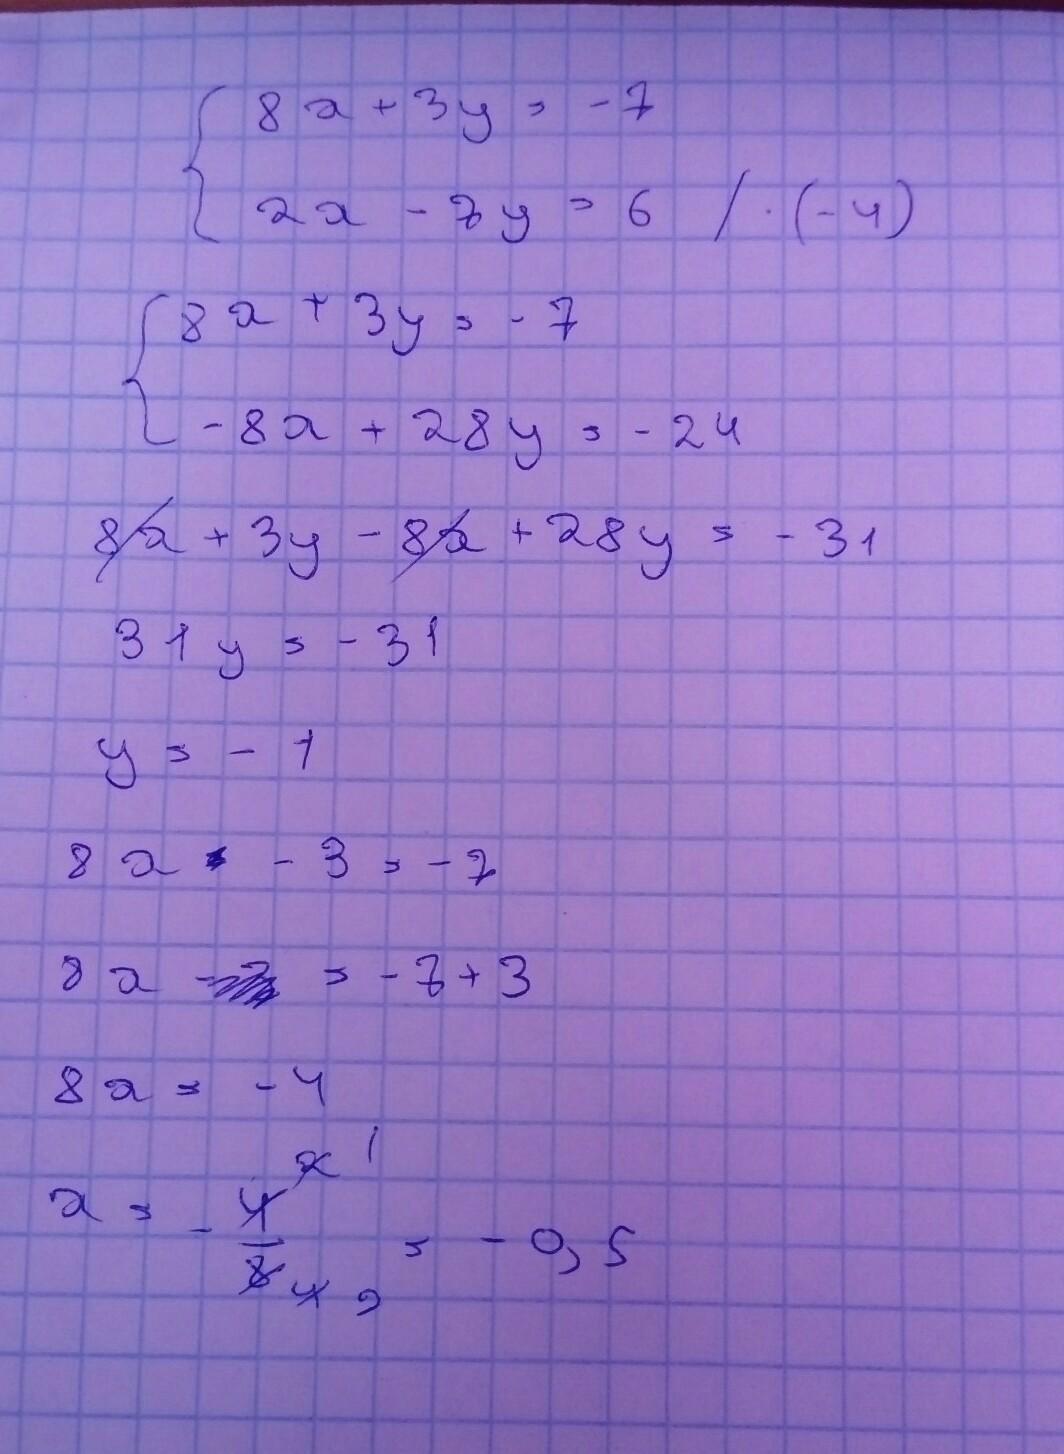 8x + 3y = -7
2x - 7y = 6 / · (-4)
8x + 3y = -7
-8x + 28y = -24
8x + 3y - 8x + 28y = -31
31y = -31
y = -1
8x - 3 = -7
8x = -7 + 3
8x = -4
x = - 4/8 2/4 1/2 = -0,5